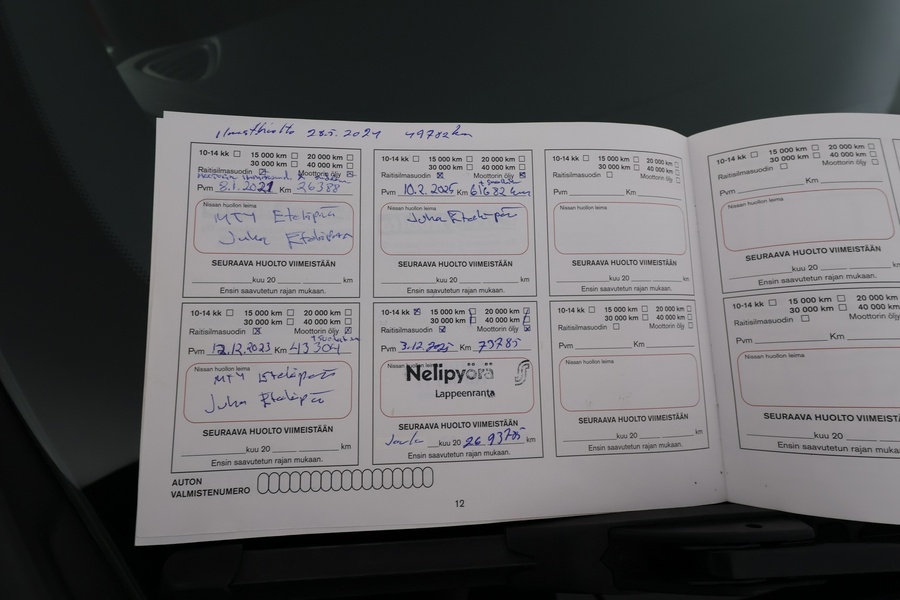 28.5.2021 49782 km
10-14 kk 15 000 km 20 000 km
30 000 km 40 000 km
Raitisilmasuodin Moottorin öljy
Pvm 8.1.2021 Km 26388
Nissan huollon leima
MTY Eteläpää
Juha Eteläpää
SEURAAVA HUOLTO VIIMEISTÄÄN
kuu 20 km
Ensin saavutetun rajan mukaan.
10-14 kk 15 000 km 20 000 km
30 000 km 40 000 km
Raitisilmasuodin Moottorin öljy
Pvm 10.2.2025 Km 61682 km
Nissan huollon leima
Juha Eteläpää
SEURAAVA HUOLTO VIIMEISTÄÄN
kuu 20 km
Ensin saavutetun rajan mukaan.
10-14 kk 15 000 km 20 000 km
30 000 km 40 000 km
Raitisilmasuodin Moottorin öljy
Pvm Km
Nissan huollon leima
SEURAAVA HUOLTO VIIMEISTÄÄN
kuu 20 km
Ensin saavutetun rajan mukaan.
10-14 kk 15 000 km 20 000 km
30 000 km 40 000 km
Raitisilmasuodin Moottorin öljy
Pvm Km
Nissan huollon leima
SEURAAVA HUOLTO VIIMEISTÄÄN
kuu 20 km
Ensin saavutetun rajan mukaan.
10-14 kk 15 000 km 20 000 km
30 000 km 40 000 km
Raitisilmasuodin Moottorin öljy
Pvm 12.12.2023 Km 43304
Nissan huollon leima
MTY Eteläpää
Juha Eteläpää
SEURAAVA HUOLTO VIIMEISTÄÄN
kuu 20 km
Ensin saavutetun rajan mukaan.
10-14 kk 15 000 km 20 000 km
30 000 km 40 000 km
Raitisilmasuodin Moottorin öljy
Pvm 3.12.2025 Km 73785
Nissan huollon leima
Nelipyörä
Lappeenranta
SEURAAVA HUOLTO VIIMEISTÄÄN
Joulu kuu 20 26 93785 km
Ensin saavutetun rajan mukaan.
10-14 kk 15 000 km 20 000 km
30 000 km 40 000 km
Raitisilmasuodin Moottorin öljy
Pvm Km
Nissan huollon leima
SEURAAVA HUOLTO VIIMEISTÄÄN
kuu 20 km
Ensin saavutetun rajan mukaan.
10-14 kk 15 000 km 20 000
30 000 km 40 000
Raitisilmasuodin Moottorin
Pvm Km
Nissan huollon leima
SEURAAVA HUOLTO VIIMEISTÄÄN
kuu 20
Ensin saavutetun rajan mukaan.
AUTON
VALMISTENUMERO
12